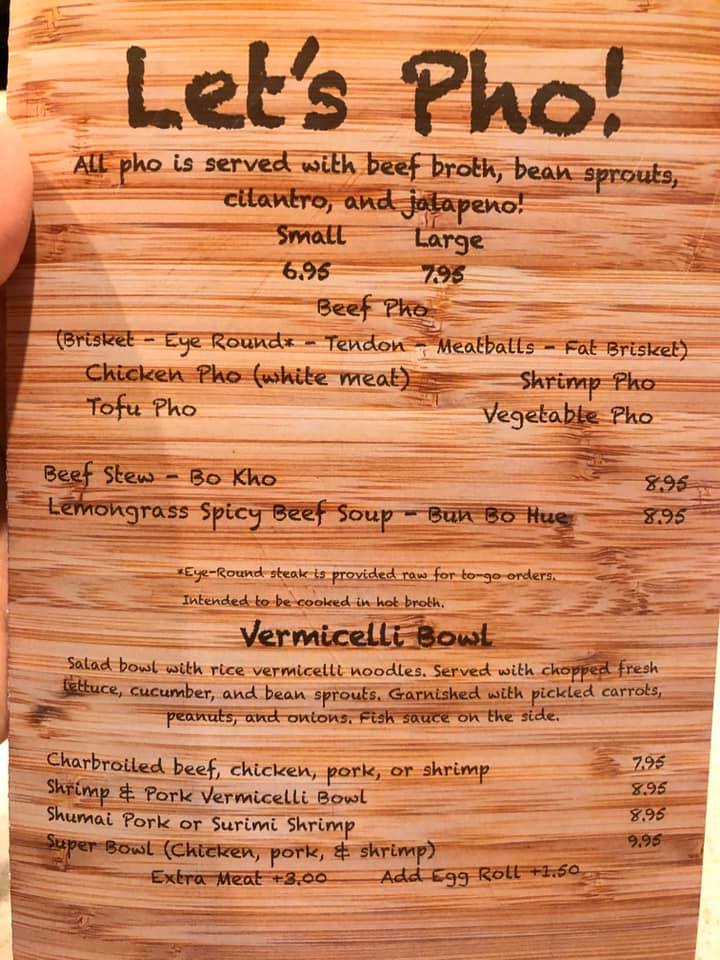 Let's Pho!
All pho is served with beef broth, bean sprouts,
cilantro, and jalapeno!
Small Large
6.95 7.95
Beef Pho
(Brisket - Eye Round* - Tendon - Meatballs - Fat Brisket)
Chicken Pho (white meat) Shrimp Pho
Tofu Pho Vegetable Pho
Beef Stew - Bo Kho 8.95
Lemongrass Spicy Beef Soup - Bun Bo Hue 8.95
*Eye-Round steak is provided raw for to-go orders.
Intended to be cooked in hot broth.
Vermicelli Bowl
Salad bowl with rice vermicelli noodles. Served with chopped fresh
lettuce, cucumber, and bean sprouts. Garnished with pickled carrots,
peanuts, and onions. Fish sauce on the side.
Charbroiled beef, chicken, pork, or shrimp 7.95
Shrimp & Pork Vermicelli Bowl 8.95
Shumai Pork or Surimi Shrimp 8.95
Super Bowl (Chicken, pork, & shrimp) 9.95
Extra Meat +3.00 Add Egg Roll +1.50